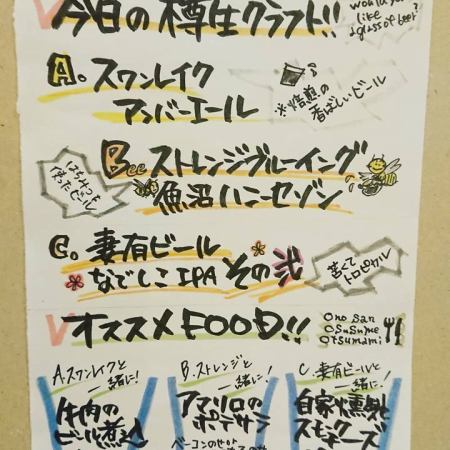 今日の樽生クラフト!!
would you
like
a glass of beer?
A. スワンレイク
アンバーエール
※焙煎の
香ばしいビール
Bee ストレンジブルーイング
魚沼ハニーセゾン
はちみつを
使ったビール
C. 妻有ビール
なでしこIPA その弐
苦くて
トロピカル
オススメFOOD!!
Ono san
osusume
otsumami
A.スワンレイクと
一緒に!
牛肉の
ビール煮込
B.ストレンジと
一緒に!
アマリロの
ポテサラ
C.妻有ビールと
一緒に!
自家燻製
スモーク
チーズ